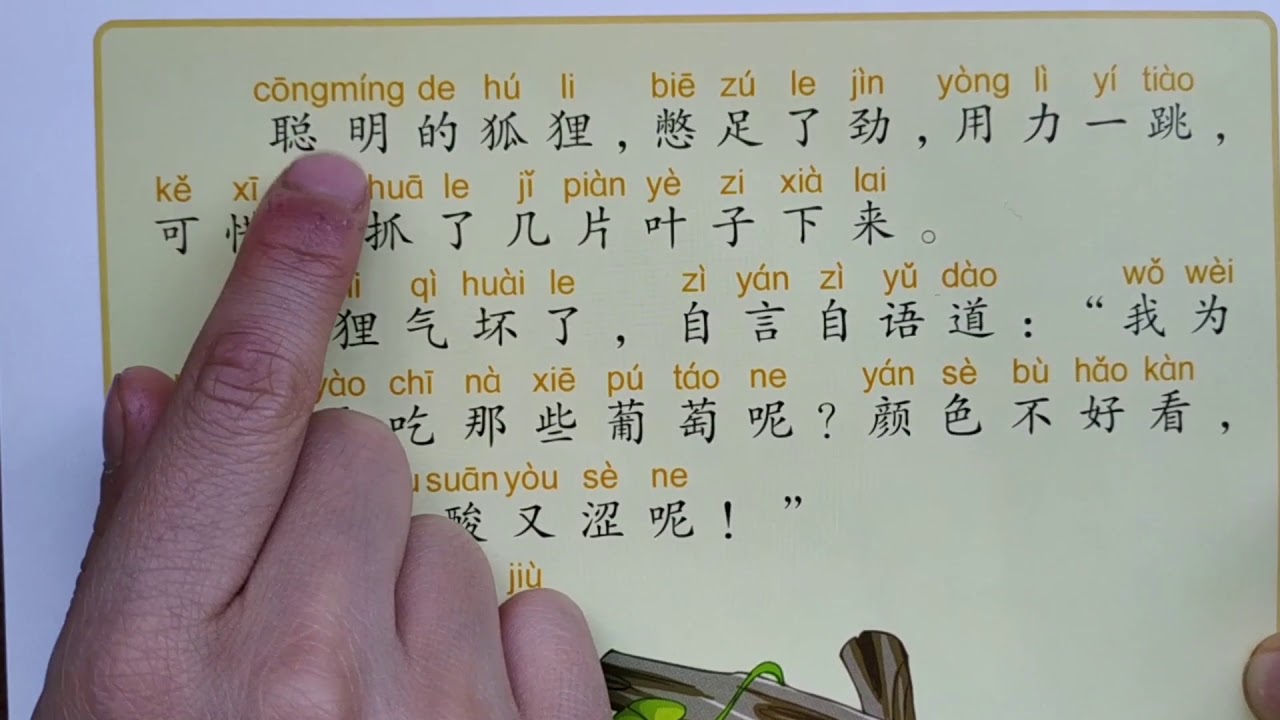 cōngmíng de hú li biē zú le jìn yòng lì yí tiào
聪明的狐狸，憋足了劲，用力一跳，
kě xī huā le jǐ piàn yè zi xià lai
可惜抓了几片叶子下来。
qì huài le zì yán zì yǔ dào wǒ wèi
狸气坏了，自言自语道：“我为
yào chī nà xiē pú táo ne yán sè bù hǎo kàn
吃那些葡萄呢？颜色不好看，
suān yòu sè ne
酸又涩呢！”
jiù